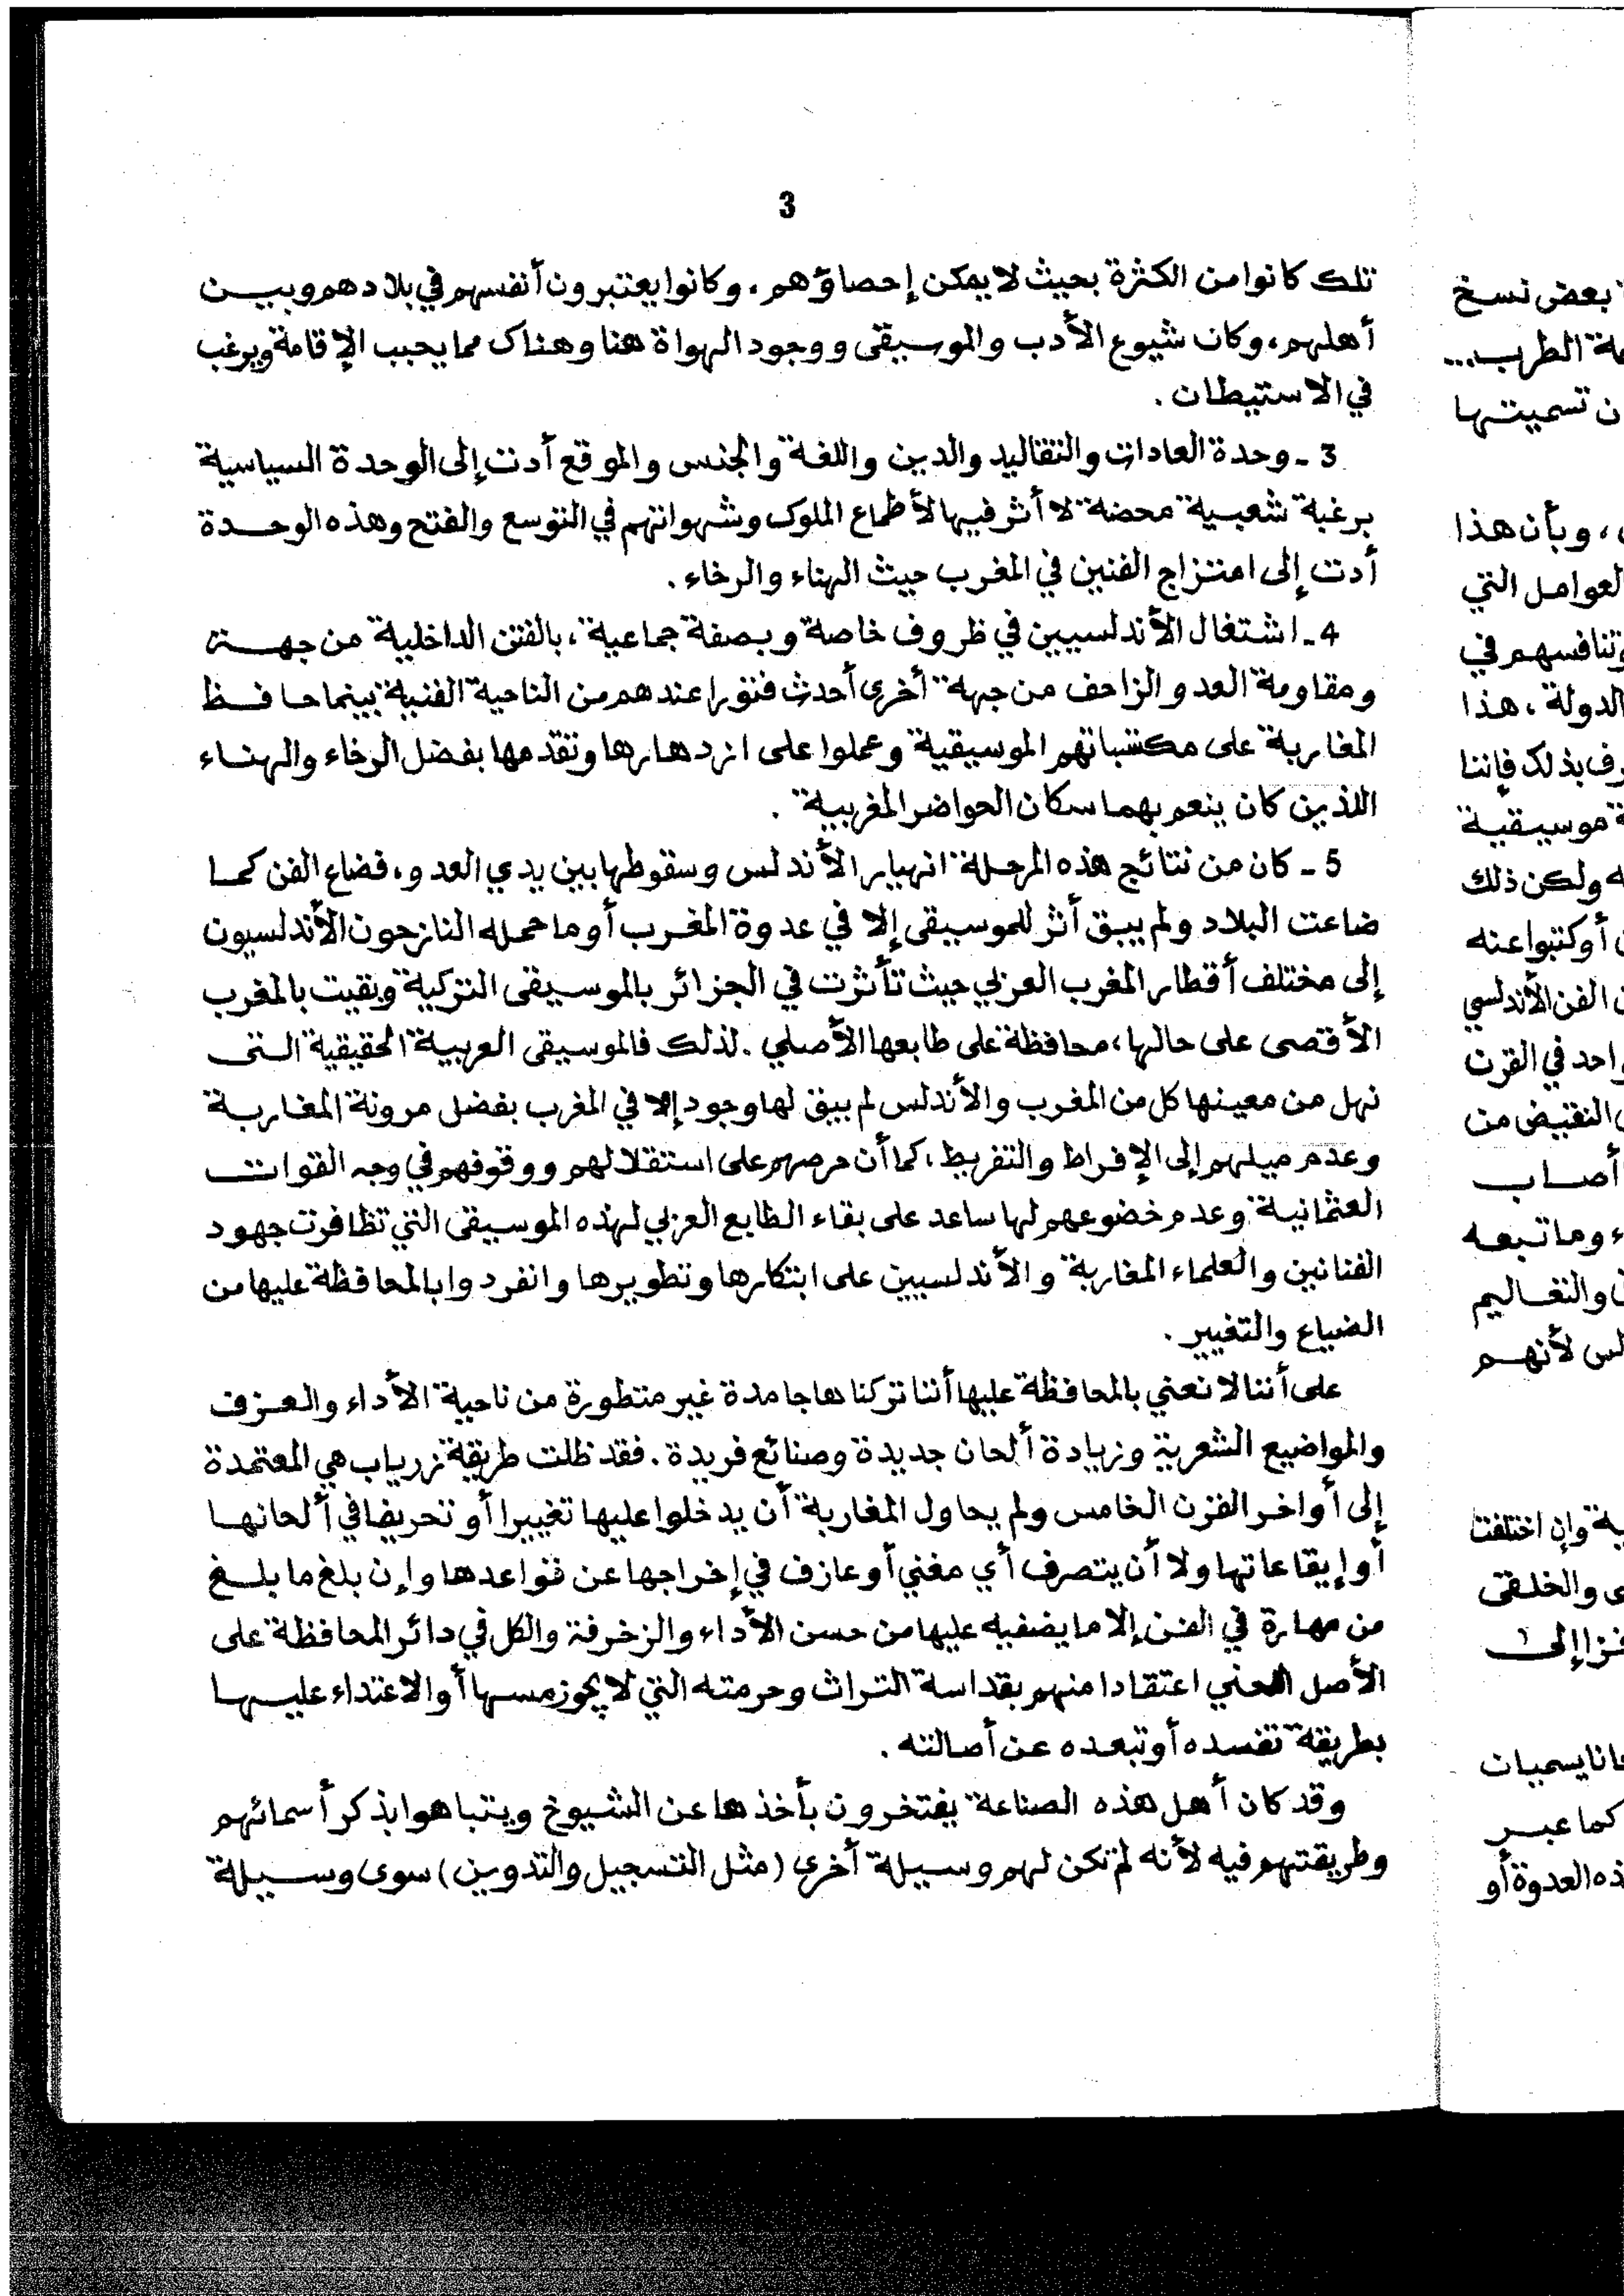 3
تلك كانوا من الكثرة بحيث لا يمكن إحصاؤهم. وكانوا يعتبرون أنفسهم في بلادهم وبيـن
أهلهم، وكان شيوع الأدب والموسيقى ووجود الهواة هنا وهناك مما يحبب الإقامة ويرغب
في الاستيطان.
3 - وحدة العادات والتقاليد والدين واللغة والجنس والموقع أدت إلى الوحدة السياسية
برغبة شعبية محضة لا أثر فيها لأطماع الملوك وشهواتهم في التوسع والفتح وهذه الوحـدة
أدت إلى امتزاج الفنين في المغرب حيث الهناء والرخاء.
4 - اشتغال الأندلسيين في ظروف خاصة وبصفة جماعية، بالفتن الداخلية من جهــة
ومقاومة العدو الزاحف من جهة أخرى أحدث فتورا عندهم من الناحية الفنية بينما حافـظ
المغاربة على مكتسباتهم الموسيقية وعملوا على ازدهارها وتقدمها بفضل الرخاء والهناء
اللذين كان ينعم بهما سكان الحواضر المغربية.
5 - كان من نتائج هذه المرحلة انهيار الأندلس وسقوطها بين يدي العدو، فضاع الفن كمـا
ضاعت البلاد ولم يبق أثر للموسيقى إلا في عدوة المغرب أو ما حمله النازحون الأندلسيون
إلى مختلف أقطار المغرب العربي حيث تأثرت في الجزائر بالموسيقى التركية وبقيت بالمغرب
الأقصى على حالها، محافظة على طابعها الأصلي. لذلك فالموسيقى العربية الحقيقية الـتى
نهل من معينها كل من المغرب والأندلس لم يبق لها وجود إلا في المغرب بفضل مرونة المغاربـة
وعدم ميلهم إلى الإفراط والتفريط، كما أن حرصهم على استقلالهم ووقوفهم في وجه القوات
العثمانية وعدم خضوعهم لها ساعد على بقاء الطابع العربي لهذه الموسيقى التي تظافرت جهود
الفنانين والعلماء المغاربة والأندلسيين على ابتكارها وتطويرها وانفردوا بالمحافظة عليها من
الضياع والتغيير.
على أننا لا نعني بالمحافظة عليها أننا تركناها جامدة غير متطورة من ناحية الأداء والعـزف
والمواضيع الشعرية وزيادة ألحان جديدة وصنائع فريدة. فقد ظلت طريقة زرياب هي المعتمدة
إلى أواخر القرن الخامس ولم يحاول المغاربة أن يدخلوا عليها تغييرا أو تحريفا في ألحانهـا
أو إيقاعاتها ولا أن يتصرف أي مغني أو عازف في إخراجها عن قواعدها وإن بلغ ما بلـغ
من مهارة في الفن إلا ما يضفيه عليها من حسن الأداء والزخرفة والكل في دائر المحافظة على
الأصل اللحني اعتقادا منهم بقداسة التراث وحرمته التي لا يجوز مسها أو الاعتداء عليـهـا
بطريقة تفسده أو تبعده عن أصالته.
وقد كان أهل هذه الصناعة يفتخرون بأخذها عن الشيوخ ويتباهوا بذكر أسمائهم
وطريقتهم فيه لأنه لم تكن لهم وسيلة أخرى (مثل التسجيل والتدوين) سوى وسـيلة
بعض نسخ
الطرب...
ن تسميتها
، وبأن هذا
لعوامل التي
وتنافسهم في
الدولة، هذا
رف بذلك فإننا
موسيقية
ولكن ذلك
أو كتبوا عنه
الفن الأندلسي
احد في القرن
النقيض من
أصاب
وما تبعه
والتقـاليم
لس لأنهم
ـة وإن اختلفت
ى والخلقى
ـزا إلى
انا يسميات
كما عبر
ذه العدوة أو